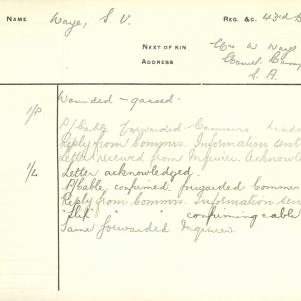 NAME Waye, S. V. REG. &C. 43rd B
NEXT OF KIN Mrs W Waye
ADDRESS
S. A.
Wounded - gassed.
P/Cable forwarded Commrs.
Reply from Commrs. Information sent
Letter received from Inquirer. Acknowle
Letter acknowledged.
P/Cable confirmed. forwarded Commrs
Reply from Commrs. Information sen
"Slip" " " confirming cable
Same forwarded Inquirer.